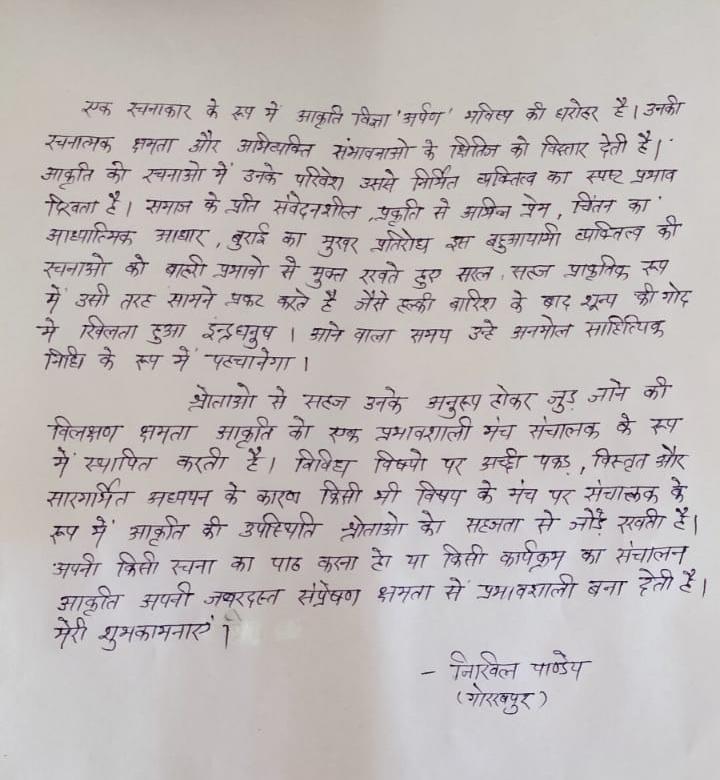 एक रचनाकार के रूप में आकृति विज्ञा 'अर्पण' भविष्य की धरोहर है। उनकी
रचनात्मक क्षमता और अभिव्यक्ति संभावनाओ के क्षितिज को विस्तार देती है।
आकृति की रचनाओ में उनके परिवेश उससे निर्मित व्यक्तित्व का स्पष्ट प्रभाव
दिखता है। समाज के प्रति संवेदनशील, प्रकृति से अभिन्न प्रेम, चिंतन का
आध्यात्मिक आधार, बुराई का मुखर प्रतिरोध इस बहुआयामी व्यक्तित्व की
रचनाओ को बाह्री प्रभावो से मुक्त रखते हुए सरल, सहज प्राकृतिक रूप
में उसी तरह सामने प्रकट करते है जैसे हल्की बारिश के बाद शून्य की गोद
मे खिलता हुआ इन्द्रधनुष । आने वाला समय उन्हे अनमोल साहित्यिक
निधि के रूप में पहचानेगा ।
श्रोताओ से सहज उनके अनुरूप होकर जुड़ जाने की
विलक्षण क्षमता आकृति को एक प्रभावशाली मंच संचालक के रूप
में स्थापित करती है। विविध विषयो पर अच्छी पकड़, विस्तृत और
सारगर्भित अध्ययन के कारण किसी भी विषय के मंच पर संचालक के
रूप में आकृति की उपस्थिति श्रोताओ को सहजता से जोड़े रखती है।
अपनी किसी रचना का पाठ करना हो या किसी कार्यक्रम का संचालन
आकृति अपनी जबरदस्त संप्रेषण क्षमता से प्रभावशाली बना देती है।
मेरी शुभकामनाएं ।
- निखिल पाण्डेय
(गोरखपुर)